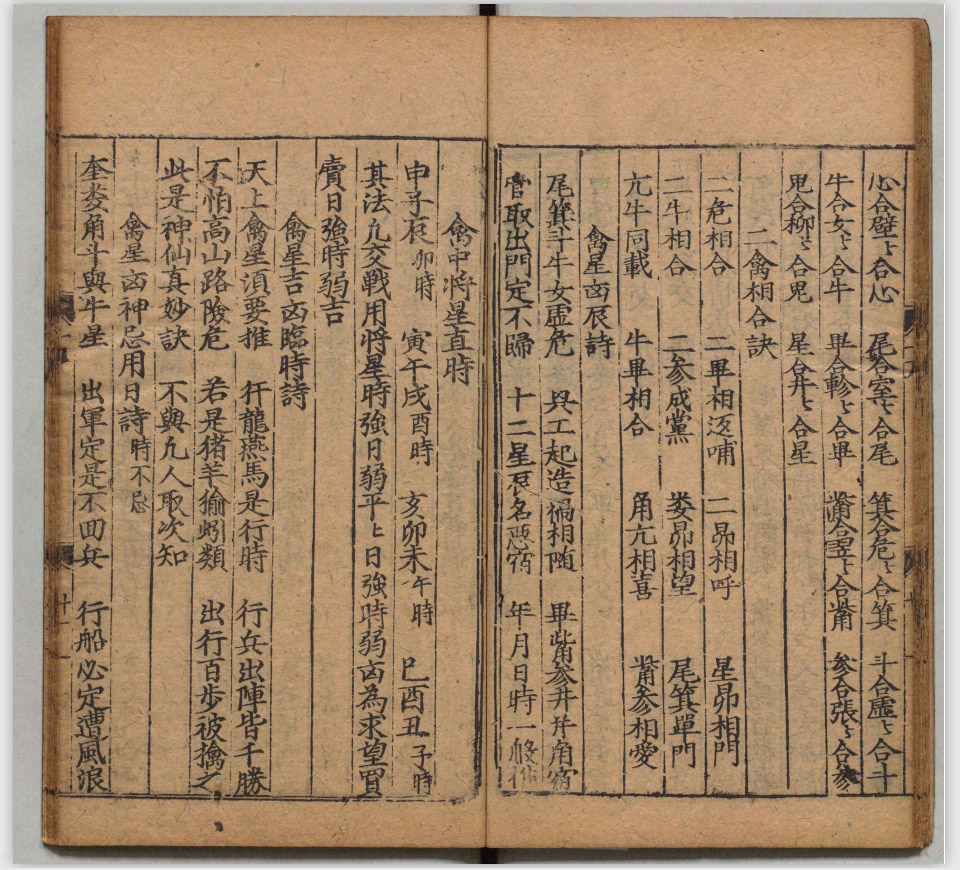 心合壁〻合心　尾合室〻合尾　箕合危〻合箕　斗合虛〻合斗
牛合女〻合牛　畢合軫〻合畢　觜合翌〻合觜　參合張〻合參
鬼合柳〻合鬼　星合井〻合星
二禽相合訣
二危相合　二畢相返哺　二昴相呼　星昴相鬥
二牛相合　二参成黨　婁昴相望　尾箕單門
亢牛同載　牛畢相合　角亢相喜　觜參相愛
禽星凶辰詩
尾箕斗牛女虛危　兴工起造禍相随　畢觜參井并角宿
营取出門定不歸　十二星辰名惡宿　年月日時一般
禽中將星直時
申子辰卯時　寅午戌酉時　亥卯未午時　巳酉丑子時
其法凢交戰用將星時強日弱平〻日強時弱凶為求望買
賣日強時弱吉
禽星吉凶臨時詩
天上禽星須要推　犴龍燕馬是行時　行兵出陣皆千勝
不怕高山路險危　若是猪羊㺄蚓類　出行百步被擒之
此是神仙真妙訣　不與凢人取次知
禽星凶神忌用日詩時不忌
奎婁角斗與牛星　出軍定是不回兵　行船必定遭風浪
十一